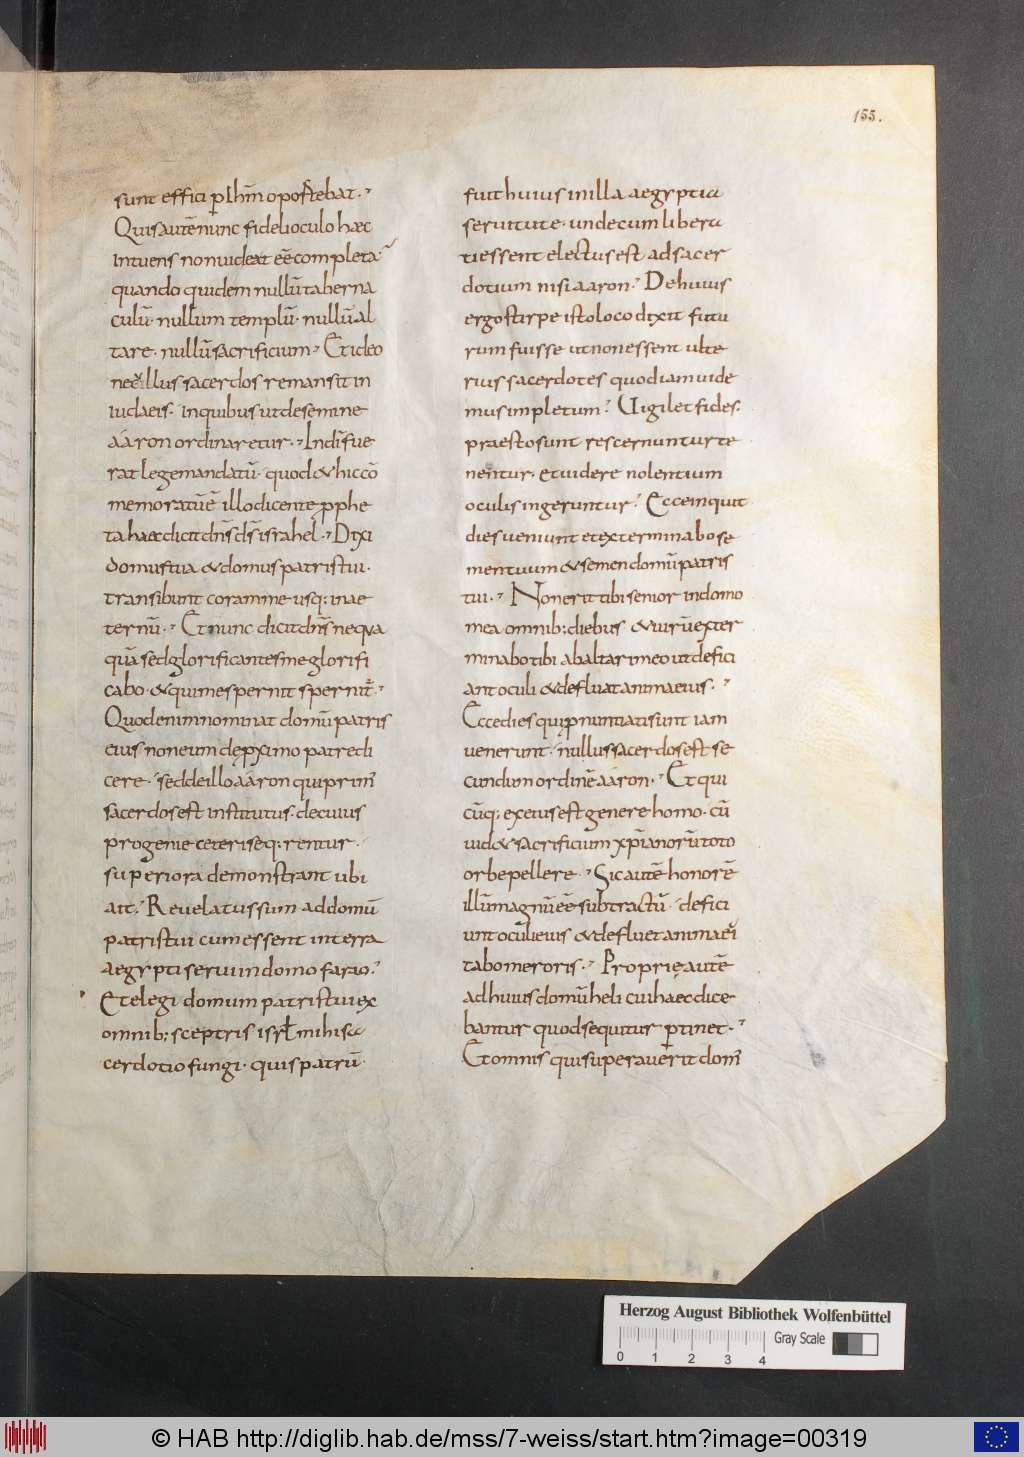 155.
sunt effici p̲ Ihm̄ oportebat.
Quis autē nunc fideli oculo haec
intuens non uideat eē completa
quando quidem nullū taberna
culū· nullum templū· nullū al
tare· nullū sacrificium· Et ideo
nec illus sacerdos remansit in
iudaeis· in quibus ut de semine
aaron ordinaretur· In di fue
rat lege mandatū· quod & hic cō
memoratū ē illo dicente ꝓphe
ta haec dicit dn̄s ds̄ israhel· Dixi
domus tua & domus patris tui·
transibunt coram me usq; in ae
ternū· Et nunc dicit dn̄s nequa
quā sed glorificantes me glorifi
cabo· & qui me spernit spernit̄·
Quod enim nominat domū patris
eius non eum de ꝓximo patre di
cere· sed de illo aaron qui prim̄
sacerdos est institutus· de cuius
progenie ceteri seq;rentur·
superiora demonstrant ubi
ait· Reuelatus sum ad domū
patris tui cum essent in terra
aegypti serui in domo farao·
Et elegi domum patris tui ex
omnib; sceptris isrƚ mihi sa
cerdotio fungi· quis patrū
fuit huius in illa aegyptia
seruitute· unde cum libera
ti essent electus est ad sacer
dotium nisi aaron· De huius
ergo stirpe isto loco dixit futu
rum fuisse ut non essent ulte
rius sacerdotes quod iam uide
mus impletum· Uigilet fides·
praesto sunt res cernuntur te
nentur· et uidere nolentium
oculis ingeruntur· Ecce inquit
dies ueniunt et exterminabo se
men tuum & semen domū patris
tui· Non erit tibi senior in domo
mea omnib; diebus & uirū exter
minabo tibi ab altari meo ut defici
ant oculi & defluat anima eius·
Ecce dies qui p̲nuntiati sunt iam
uenerunt· nullus sacerdos est se
cundum ordinē aaron· Et qui
cūq; ex eius est genere homo· cū
uid& sacrificium xp̄ianorū toto
orbe pellere· Sic autē honorē
illū magnū ē subtractū· defici
unt oculi eius & defluet anima ei
tabo meroris· Propriae autē
ad huius domū heli cui haec dice
bantur quod sequitur p̲tinet·
Et omnis qui superauerit dom̄
Herzog August Bibliothek Wolfenbüttel
Gray Scale
0 1 2 3 4
© HAB http://diglib.hab.de/mss/7-weiss/start.htm?image=00319